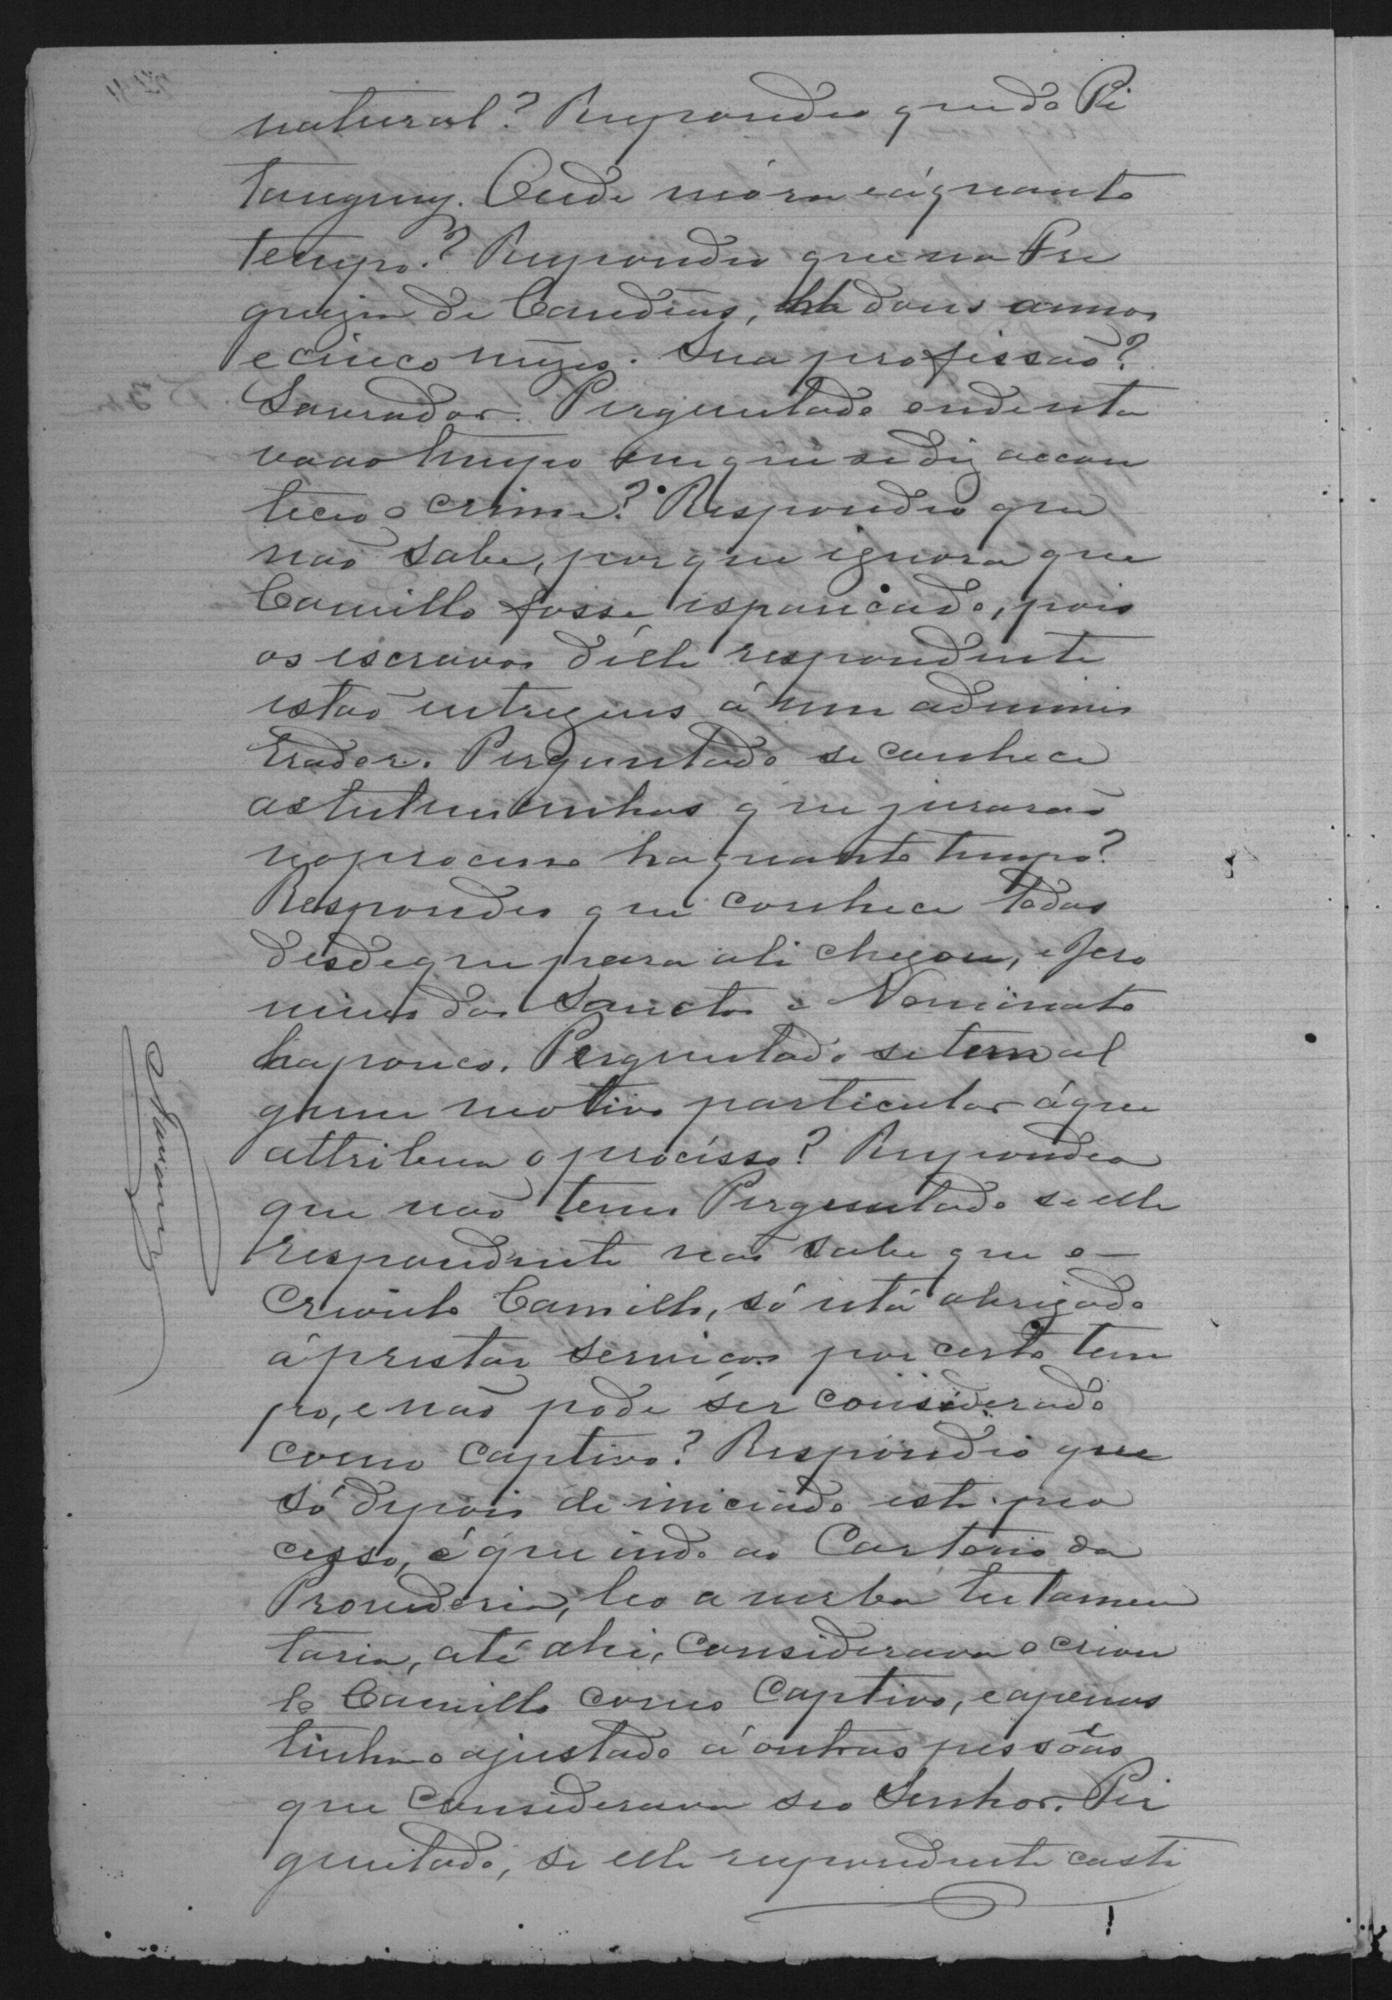 natural? Respondeo que do Pi
tanguy. Onde móra e á quanto
tempo? Respondeo que na Fre
guezia de Candêas, ha dous annos
e cinco mezes. Sua profissão?
Lavrador. Perguntado onde esta
va ao tempo em que se diz accon
teceo o crime? Respondeo que
não sabe, por que ignora que
Camillo fosse espancado, pois
os escravos d'elle respondente
estão entregues á um adminis
trador. Perguntado se conhece
as testemunhas que jurarão
no processo ha quanto tempo?
Respondeo que conhece todas
desde que para ali chegou, e Jero
nimo dos Sanctos e Nominato
ha pouco. Perguntado se tem al
gum motivo particular á que
attribua o procésso? Respondeo
que não tem. Perguntado se elle
respondente não sabe que o
Crioulo Camillo, só está obrigado
á prestar serviços por certo tem
po, e não póde ser considerado
como captivo? Respondeo que
só depois de iniciado este pro
cesso, é que indo ao Cartorio da
Provedoria, leo a verba testamen
taria, até ahi, considerava o criou
lo Camillo como Captivo, e apenas
tinha o ajustado á outras pessôas
que considerava seo Senhor. Per
guntado, se elle respondente casti